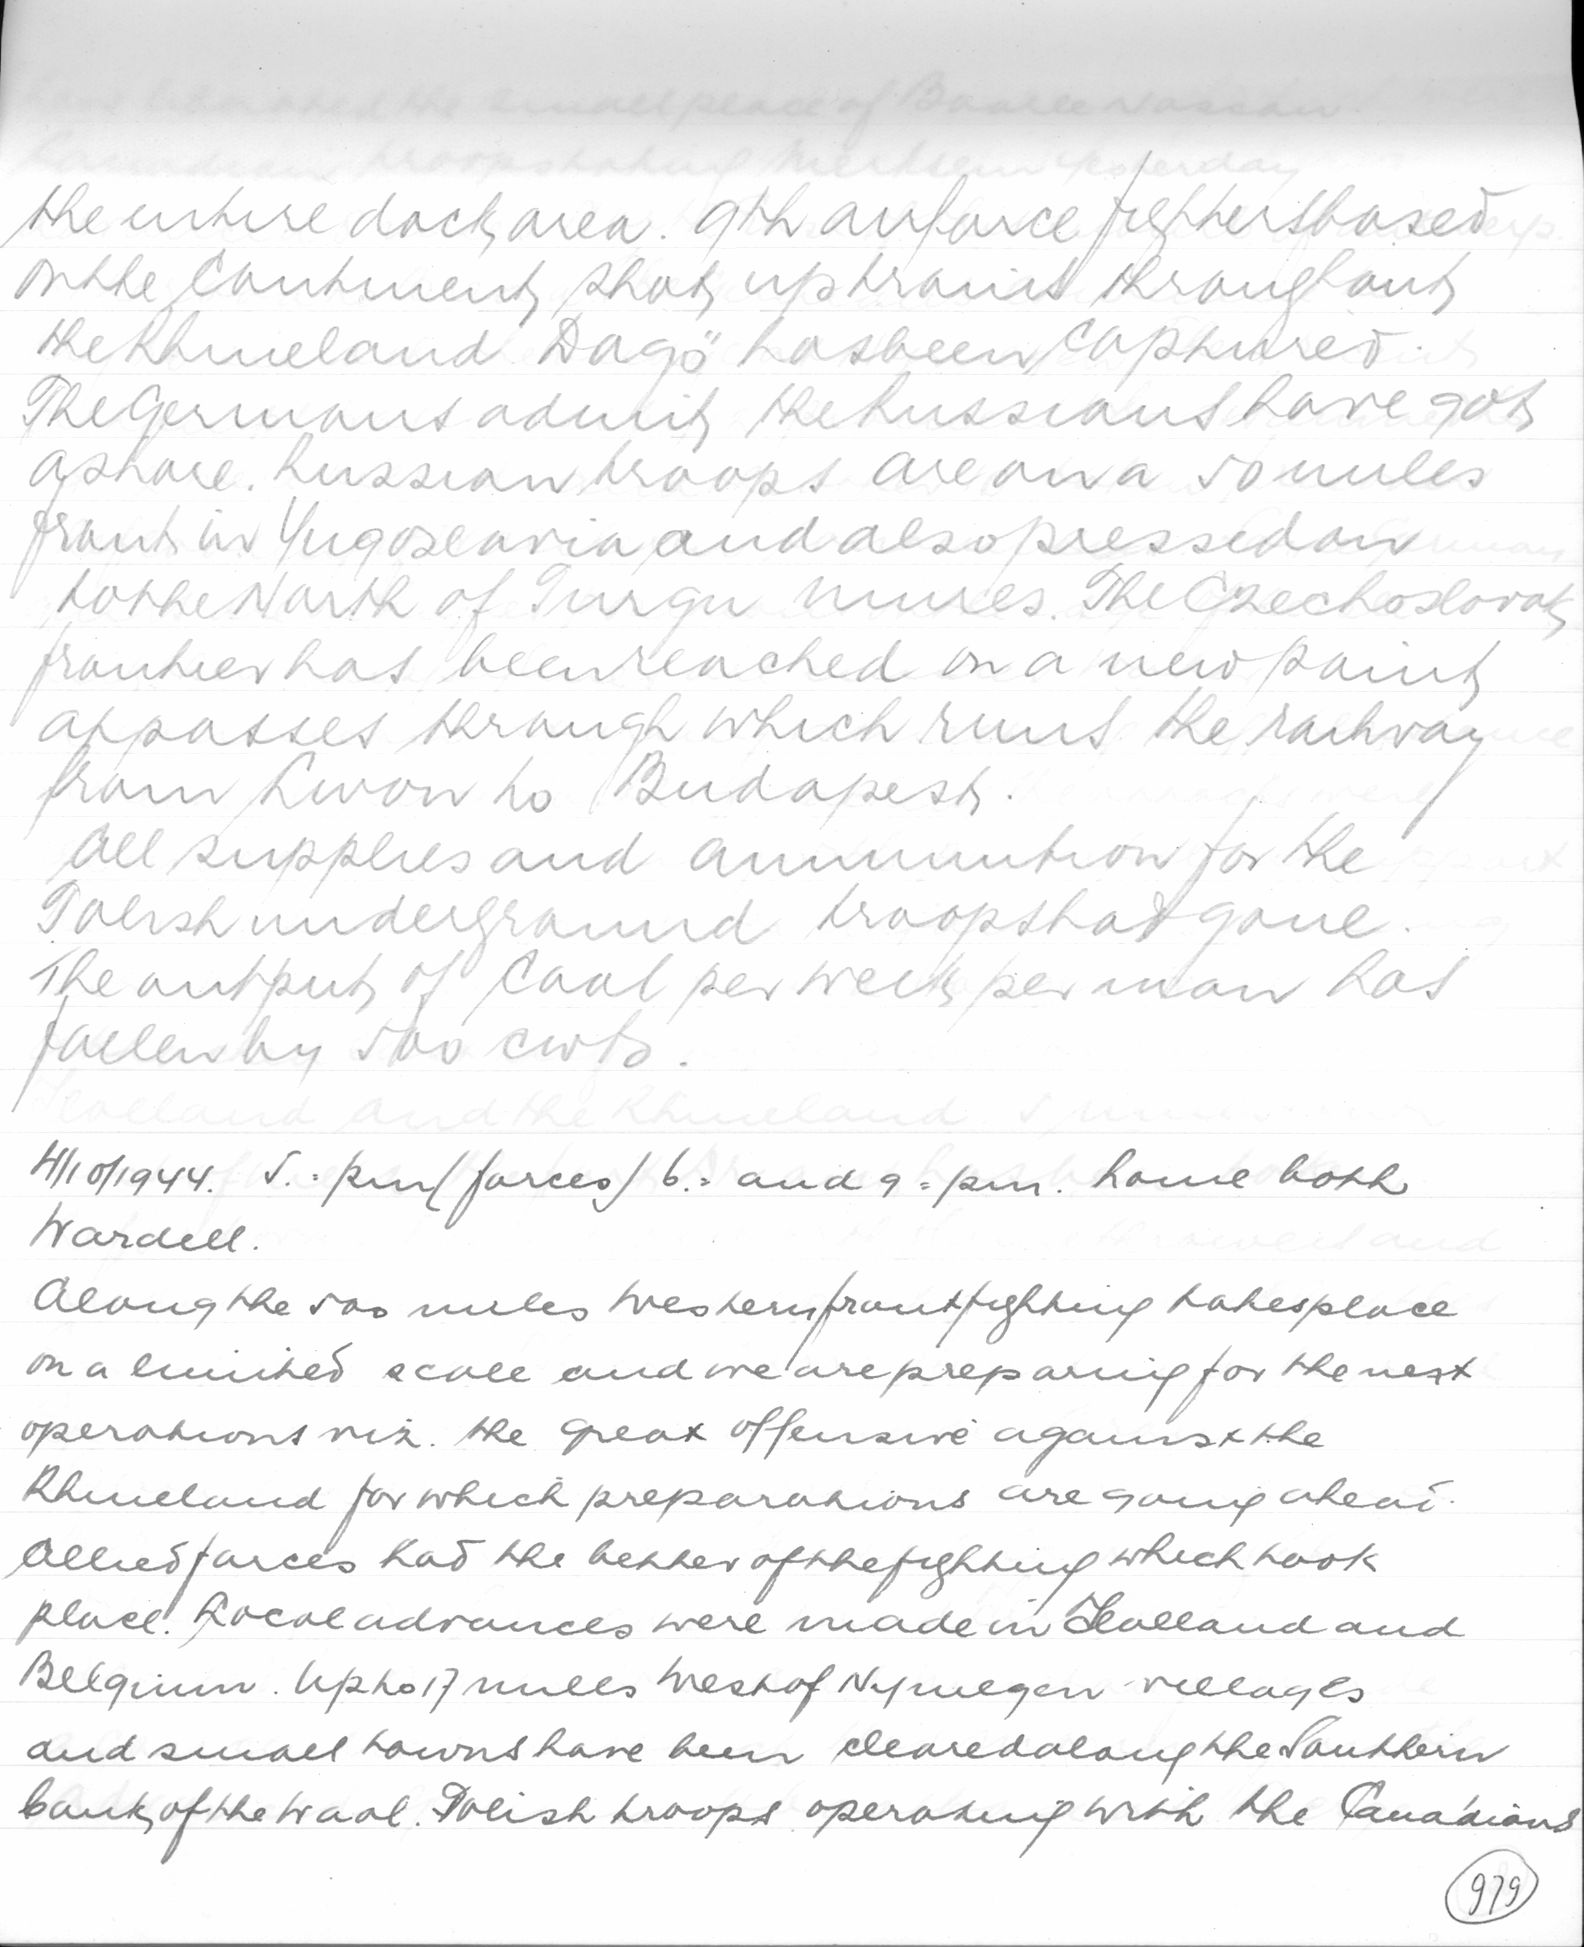 the entire dock area. 9th airforce fighters based
on the Continent shot up trains throughout
the Rhineland Dagö has been captured.
The Germans admit the Russians have got
ashore. Russian troops are on a 50 miles
front in Yugoslavia and also pressed on
to the North of Turgu Mures. The Czechoslovak
frontier has been reached on a new point
at passes through which runs the railway
from Lwow to Budapest.
All supplies and ammunition for the
Polish underground troops had gone.
The output of Coal per week per man has
fallen by 500 cwts.
4/10/1944. 5.= pm (forces) 6.= and 9 = pm. home both
Wardell.
Along the 500 miles Western front fighting takes place
on a limited scale and we are preparing for the next
operations viz. the great offensive against the
Rhineland for which preparations are going ahead.
Allied forces had the better of the fighting which took
place. Local advances were made in Holland and
Belgium. Up to 17 miles West of Nymegen villages
and small towns have been cleared along the Southern
bank of the Waal. Polish troops operating with the Canadians
979